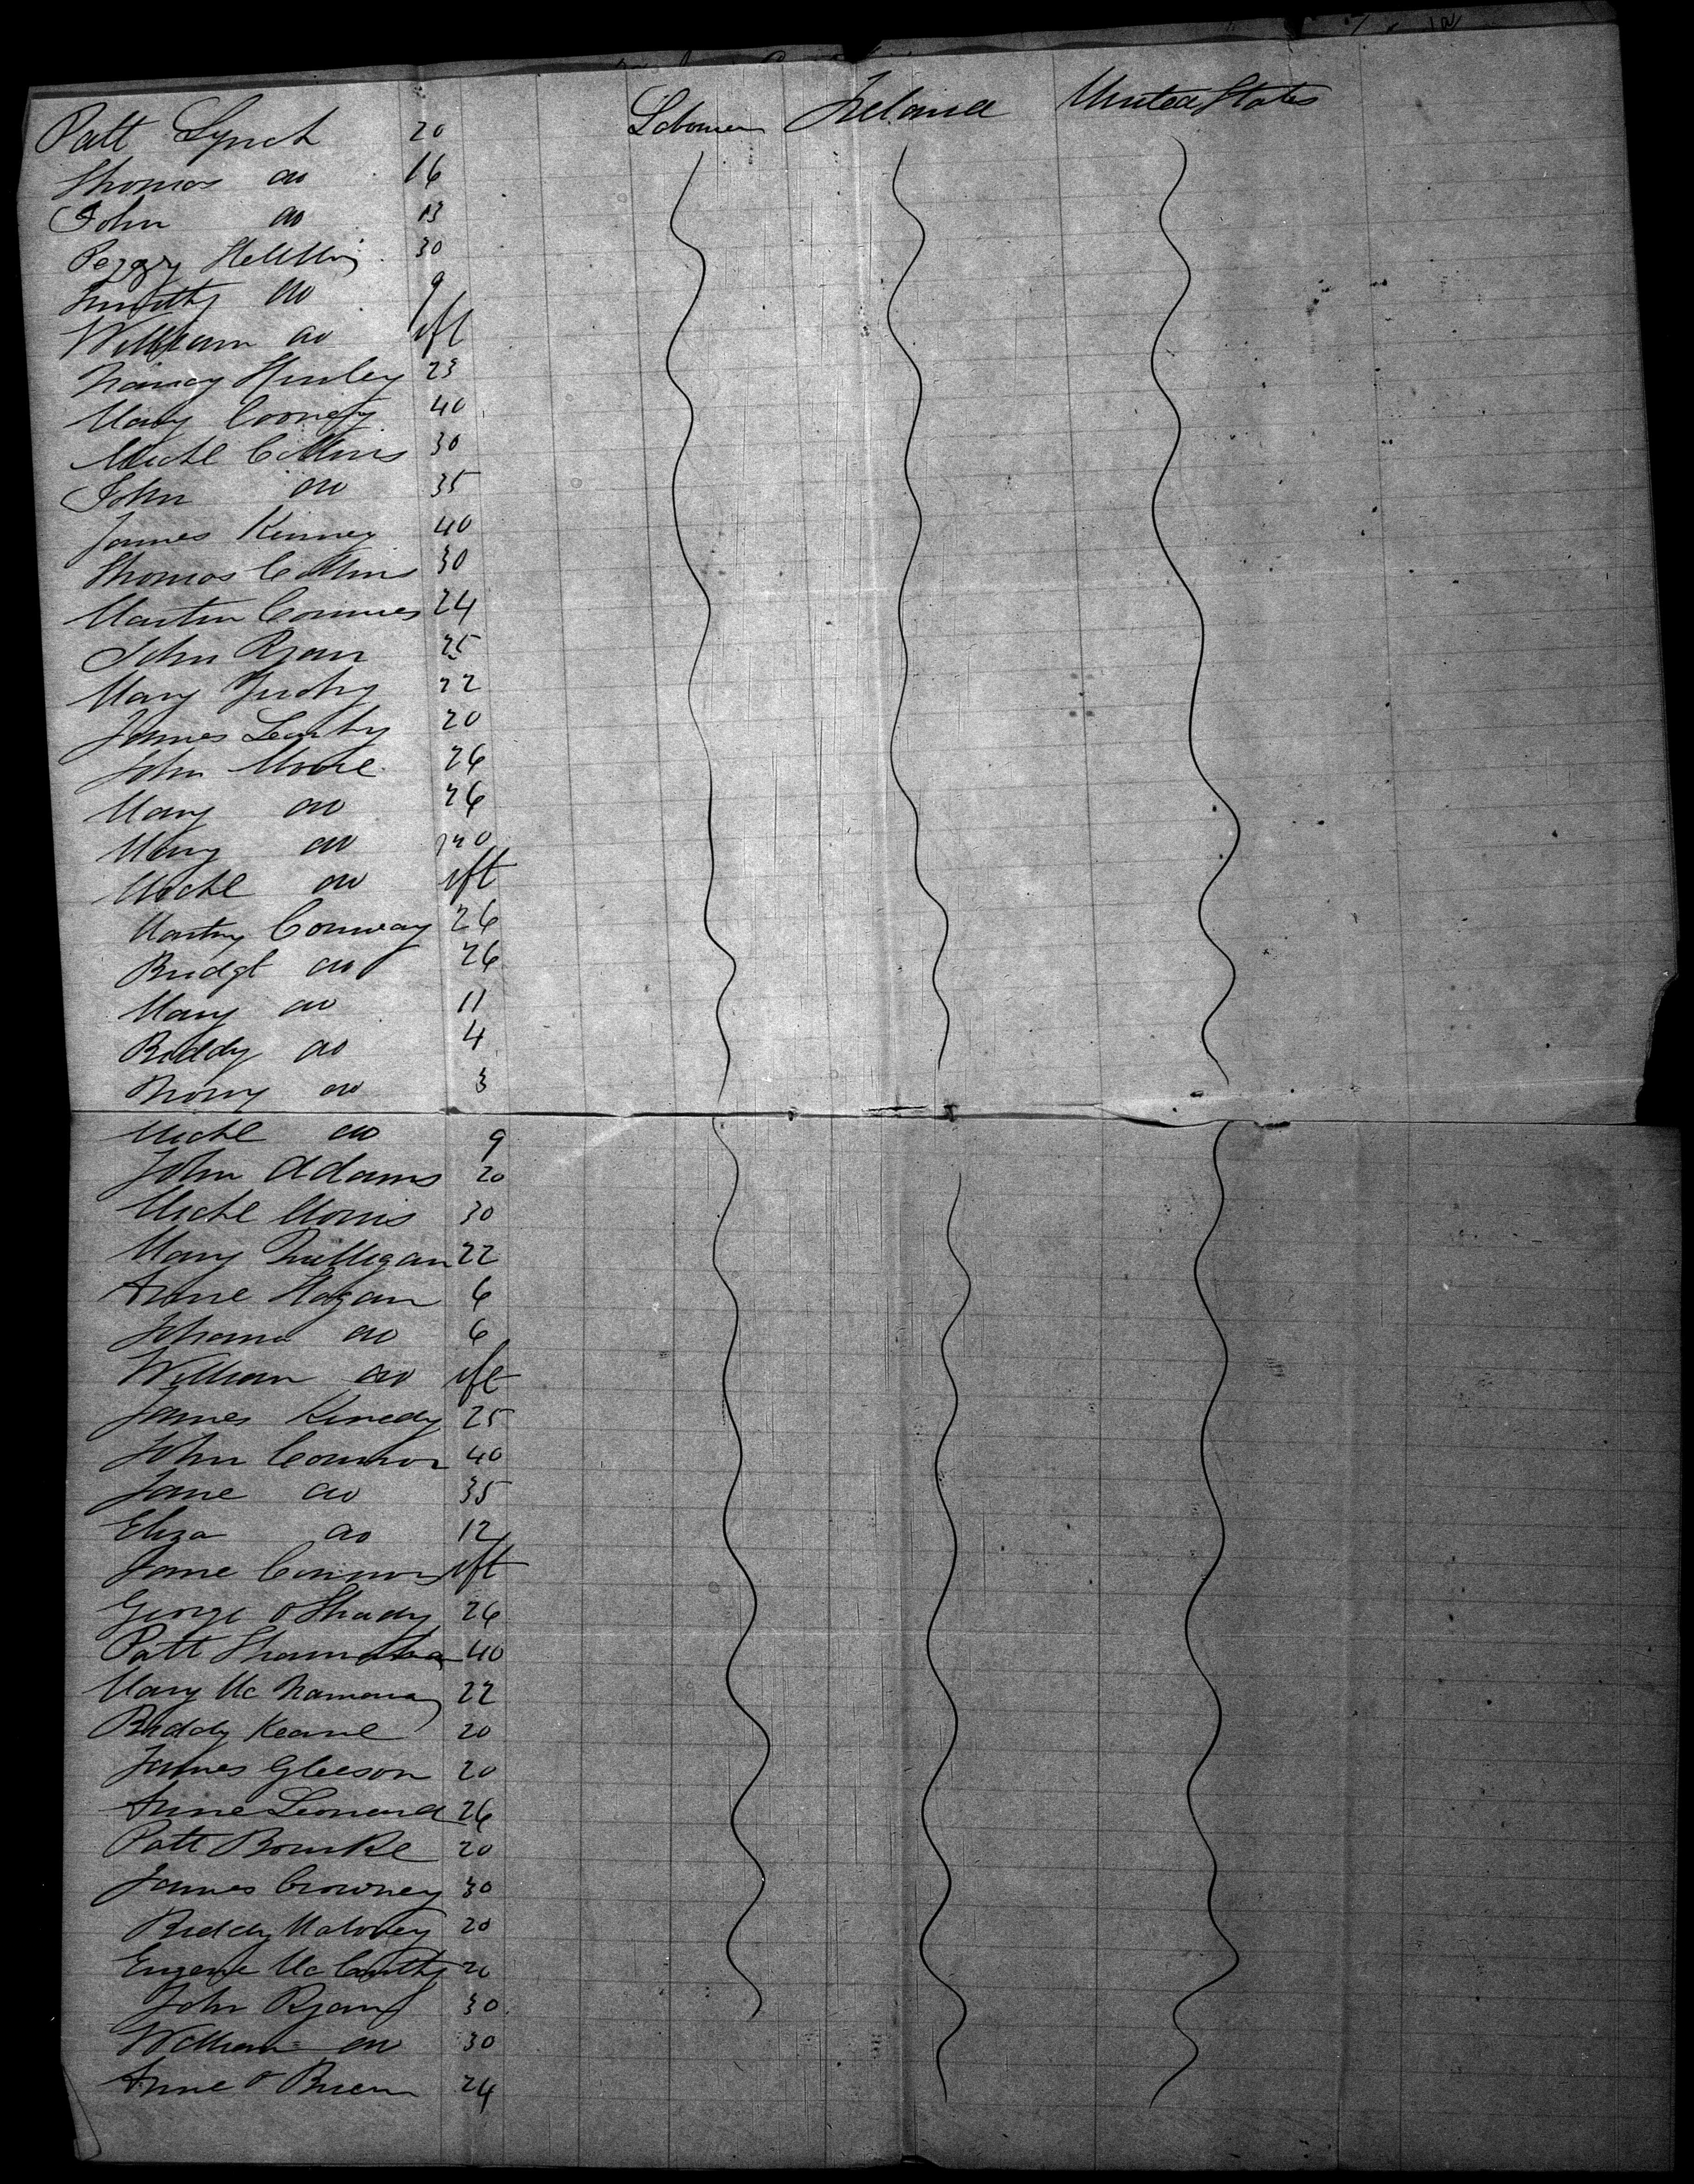 Patt Lynch 20 Labourer Ireland United States
Thomas do 16
John do 13
Peggy 30
Timothy do 9
William do ift
Nancy Hurley 23
Mary Cooney 40
Michl Collins 30
John do 35
James Kinney 40
Thomas Collins 30
Martin Connies 24
John Ryan 25
Mary 22
James Leahy 20
John Moore 26
Mary do 26
Mary do
Michl do ift
Conway 26
Bridgt do 26
Mary do 11
Biddy do 4
Thomy do 3
Michl do 9
John Adams 20
Michl Morris 30
Mary Mulligan 22
Anne Hogan 6
Johana do 6
William do ift
James Kinedy 25
John Connor 40
Jane do 35
Eliza do 12
Jane Connors ift
George O Shady 26
Patt 40
Mary Mc Namara 22
Biddy Keane 20
James Gleeson 20
Anne Leonard 26
Patt Bourke 20
James Crowney 30
Biddy Maloney 20
Eugene McCarthy 20
John Ryan 30
William do 30
Anne O Brien 24